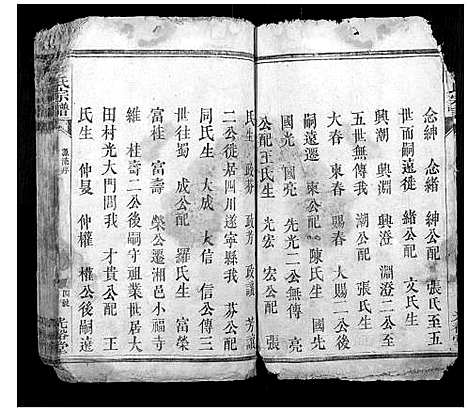 念紳 念緒 紳公配 張氏至五
世而嗣遠徙 緒公配 文氏生
興潮 興淵 興澄 淵澄二公至
五世無傳我 潮公配 張氏生
大春 東春 賜春 大賜二公後
嗣遠遷 東公配 陳氏生 國先
國光 國亮 先光二公無傳 亮
公配 王氏生 光宏 宏公配 張
氏生 政芬 政芳 政議 芳議
二公徙居四川遂寧縣我 芬公配
同氏生 大成 大信 信公傳三
世往蜀 成公配 羅氏生 富榮
富桂 富壽 榮公遷湘邑小福寺
維 桂壽二公後嗣守祖業世居大
田村光大門閭我 才貴公配 王
氏生 仲夏 仲權 權公後嗣遠
氏宗譜
源流序
四號
光裕堂